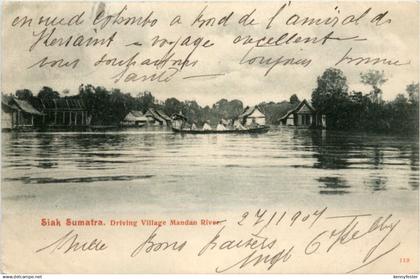 en rued Colombo a bord de l'amiral de
Kersaint e voyage excellent
vous souhaitons toujours bonne
Santé
Siak Sumatra. Driving Village Mandan River.
27/1 1904
Mille Bons baisers
113
kennyfester